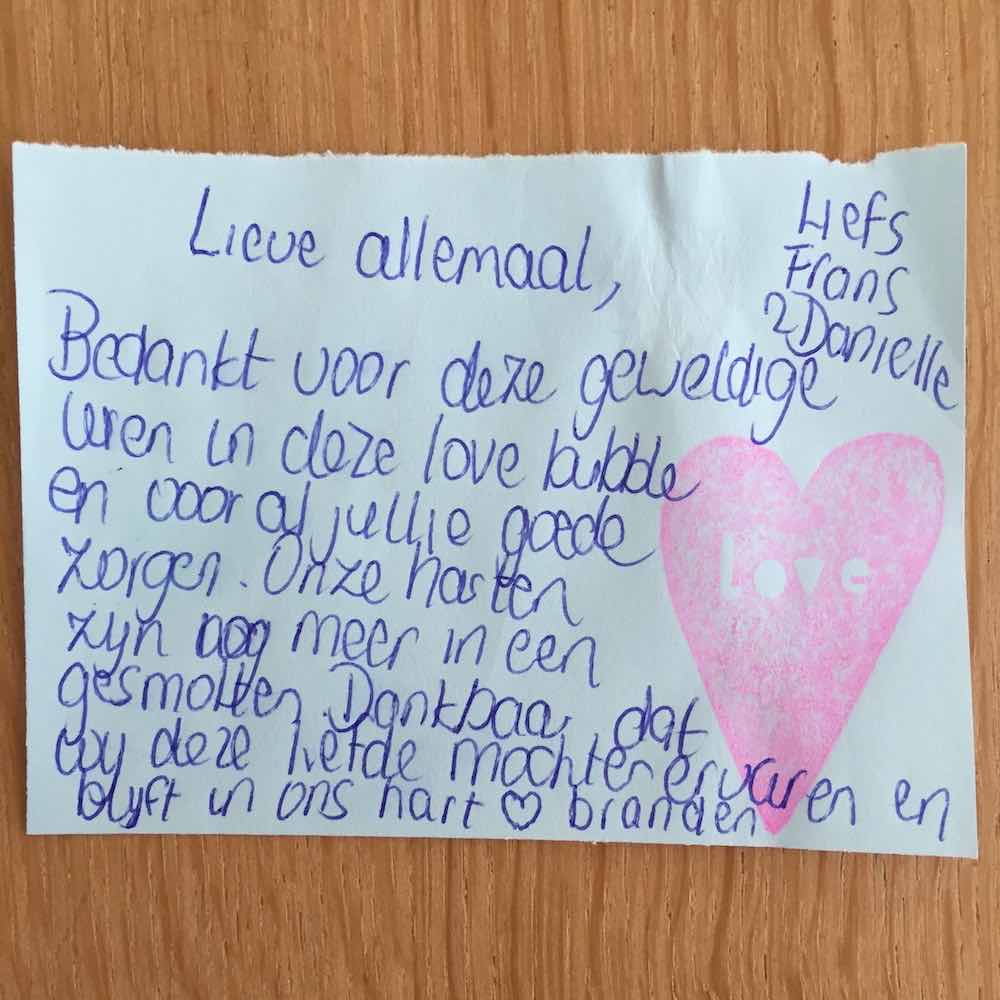 Lieve allemaal,
Bedankt voor deze geweldige
uren in deze love bubble
en vooral jullie goede
zorgen. Onze harten
zijn nog meer in een
gesmolten. Dankbaar dat
wij deze liefde mochten ervaren en
blijft in ons hart ♡ branden
Liefs
Frans
& Danielle
love